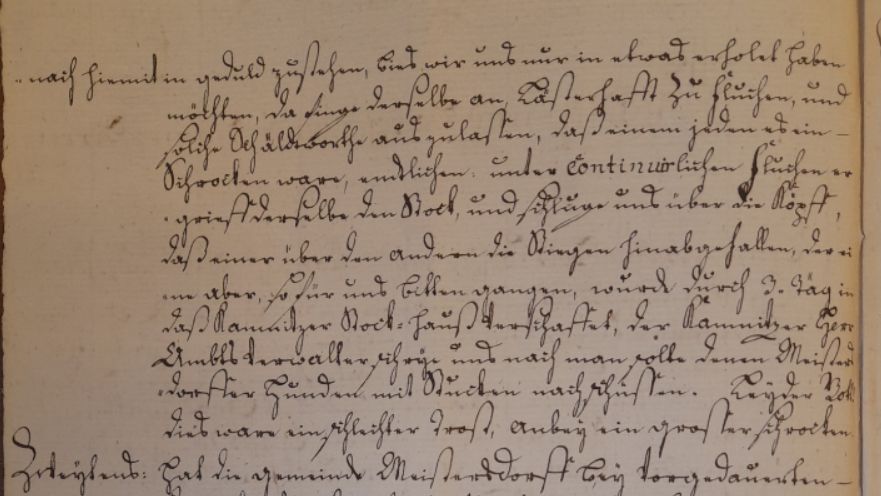 nach hiemit in geduld zustehen, bies wir uns nur in etwas erholet haben
möchten, da finge derselbe an, Lästerhafft zu fluchen, und
solche Schäldworthe auszulassen, daß einem jeden es ein-
Schrocken ware, endtlichen: unter Continuirlichen fluchen er
grieff derselbe den Stock, und schluge uns über die Köpff,
daß einer über den andern die Stiegen hinabgefallen, der ei
ne aber, so für uns bitten gangen, wurde durch 3. Täg in
daß Kamnitzer Stock-hauß Verschaffet, der Kamnitzer Herr
Ambts Verwalter schrye uns nach man solte denen Meister
dorffer hunden mit Stucken nach schussen. Leyder Gott
dies ware ein schlechter Trost, anbey ein grosser schrocken
Zweytens: hat die gemeinde Meistersdorff bey vorgedauerten-